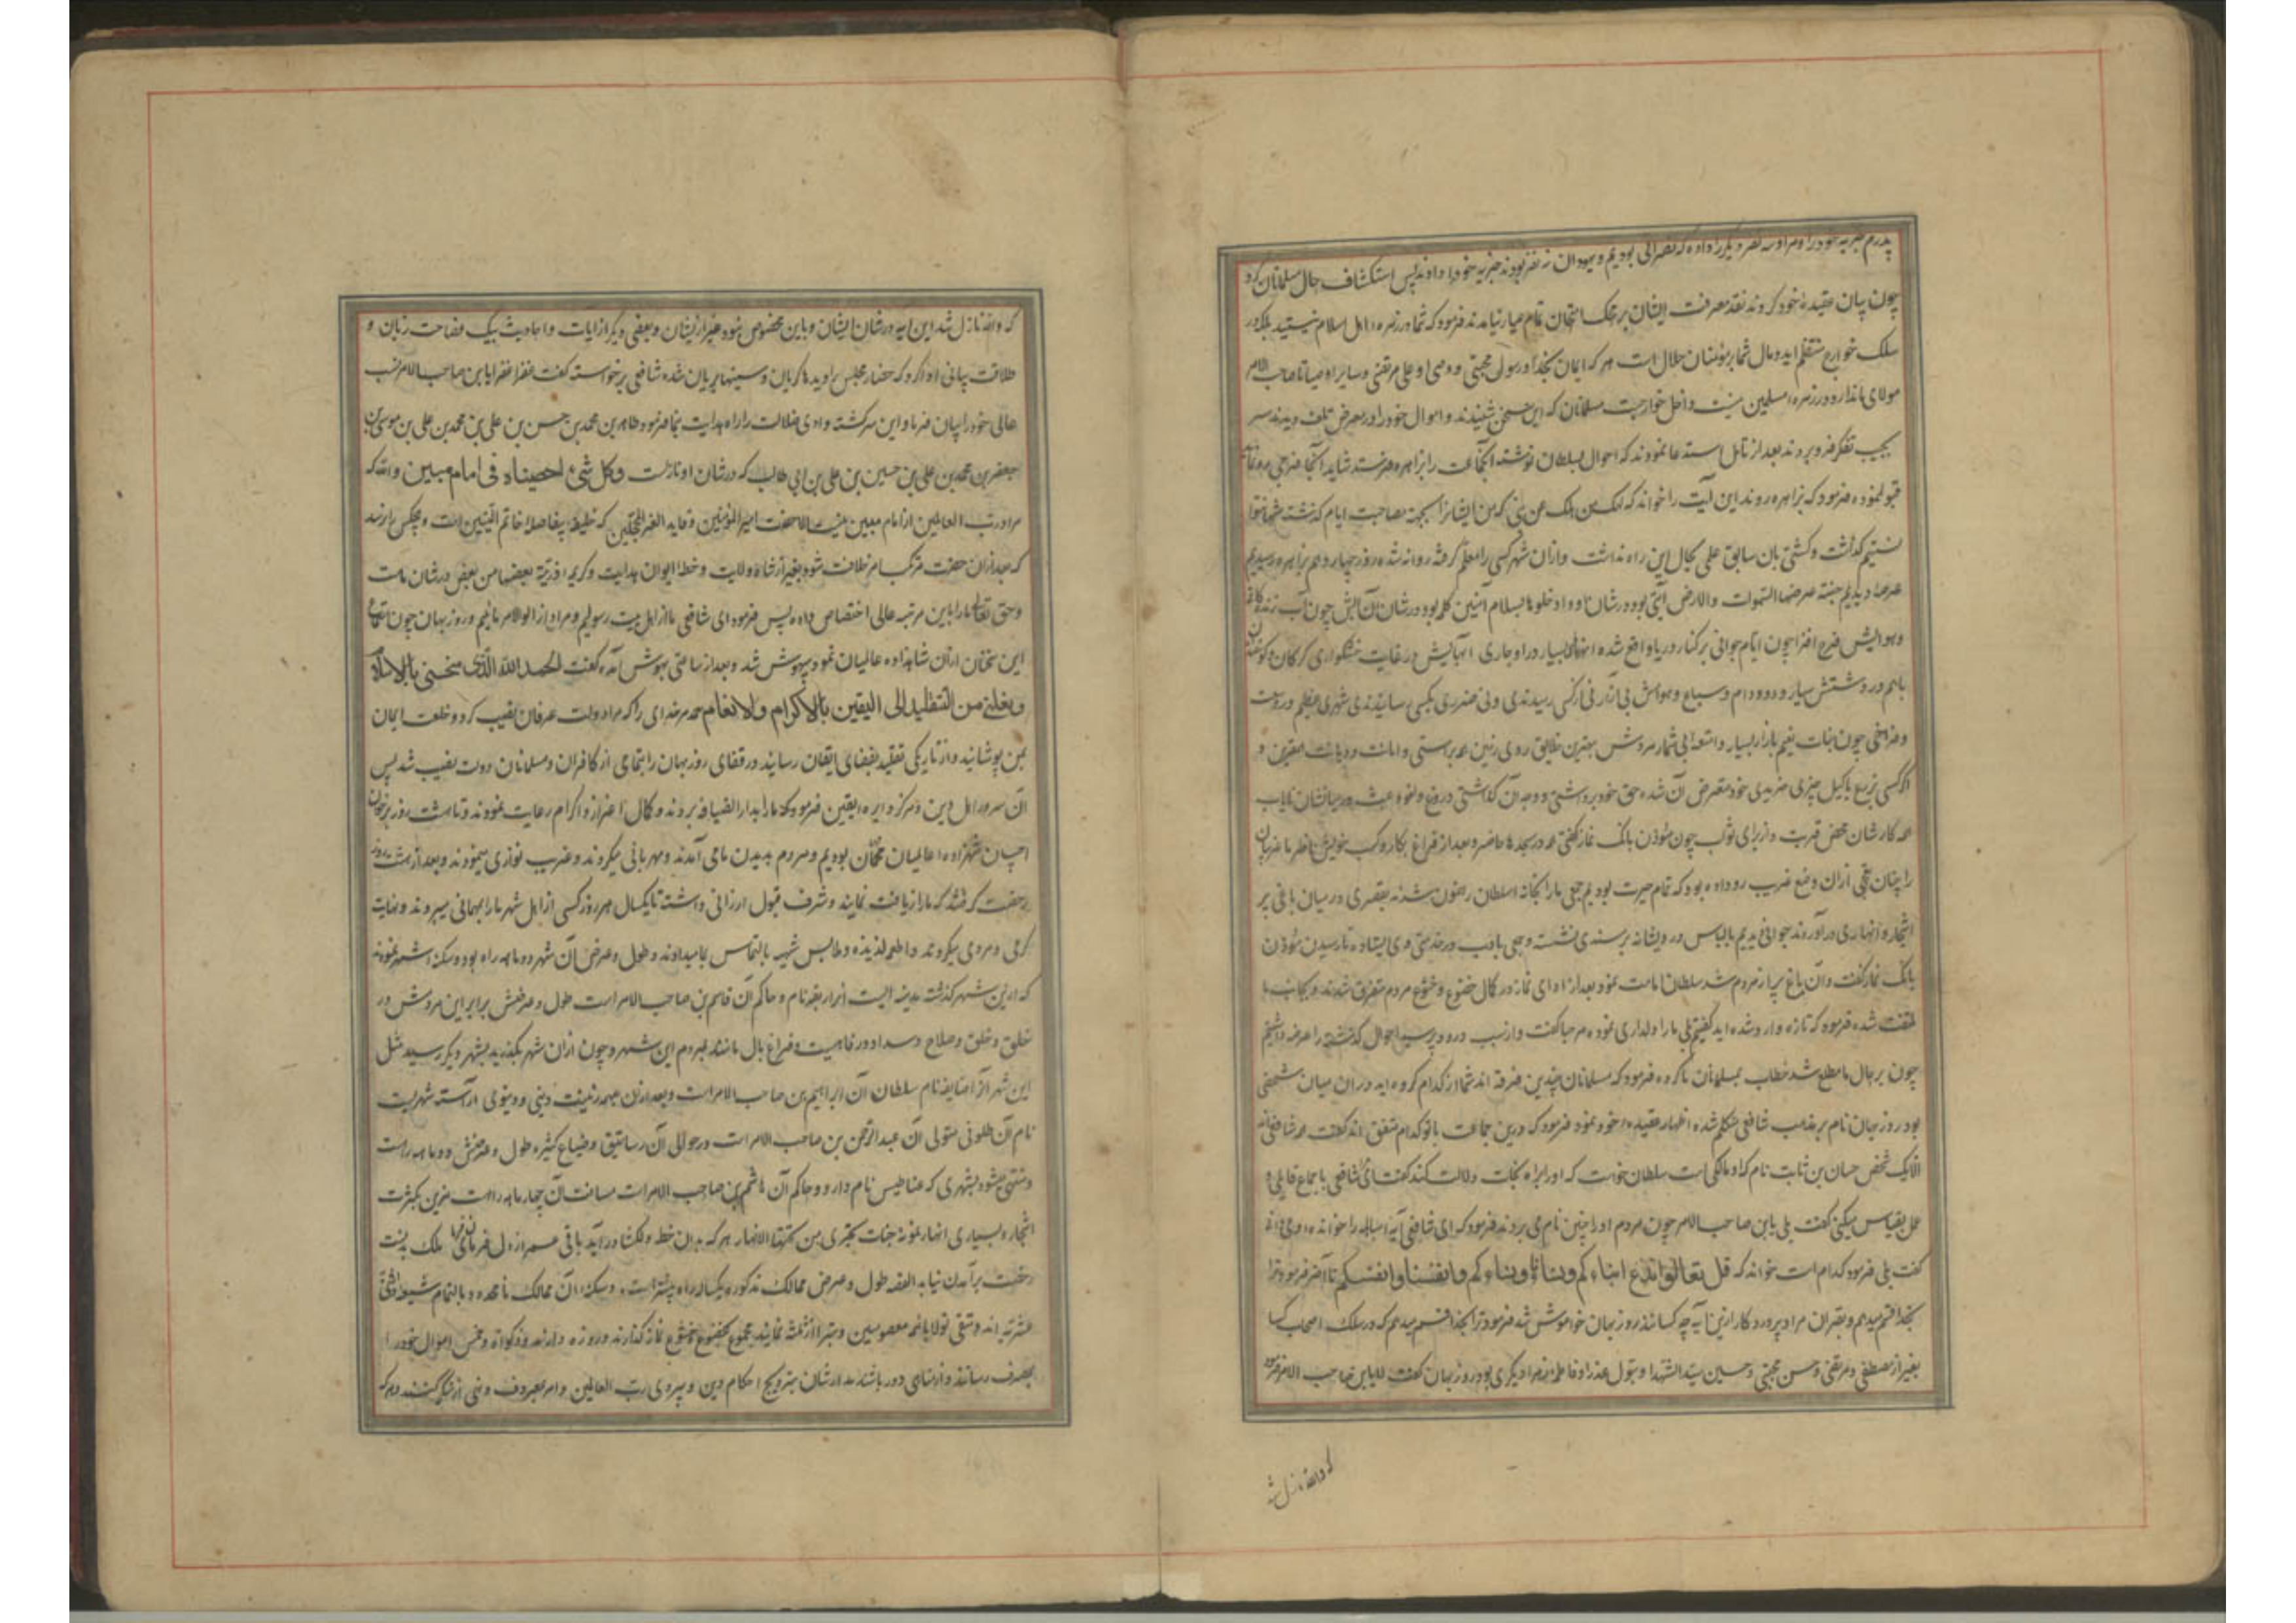 پدرم جزیه خود را و مرا و سه نفر دیگر را داده که نصرانی بودیم و یهودان نه نفر بودند جزیه خود را دادند پس استکشاف حال مسلمانان کرد
چون بیان عقیده خود کردند نقد معرفت ایشان بر محک امتحان تمام عیار نیامد فرمود که شما در زمره اهل اسلام نیستید بلکه در
سلک خوارج منتظم اید و مال شما بر مؤمنان حلال است هر که ایمان بخدا و رسول مجتبی و وصی او علی مرتضی و سایر اوصیا تا صاحب الامر
مولای ما ندارد در زمره مسلمین نیست و داخل خوارجست مسلمانان که این سخن شنیدند و اموال خود را در معرض تلف دیدند سر
بجیب تفکر فرو بردند بعد از تامل استدعا نمودند که احوال بسلطان نوشته آنجماعت را بزاهره فرستد شاید آنجا فرجی رو نماید
قبول نموده فرمود که بزاهره روند این آیت را خواند که لیهلک من هلک عن بینه که من ایشانرا بجهة مصاحبت ایام گذشته تنها
نستیم گذاشت و کشتی بان سابق علی بحال این راه نداشت و از آن شهر کسی را معلم گرفته روانه شده روز چهاردهم بزاهره رسیدیم
عرصه دیدیم جنة عرضها السموات والارض آیتی بود در شان او و ادخلوها بسلام آمنین کلمه بود در شان آن آبش چون آب زندگانی
و هوایش فرح افزا چون ایام جوانی بر کنار دریا واقع شده انهار بسیار در او جاری آبهایش در غایت خوشگواری گرگان و گوسفندان
باهم در دشتش سیار و دد و دام و سباع و هوامش بی آزار نی از کسی رمیدندی و نی ضرری بکسی رسانیدندی شهری عظیم در وسعت
و فراخی چون جنات نعیم بازار بسیار و امتعه بی شمار مردمش بهترین خلایق روی زمین همه براستی و امانت و دیانت قرین و
اگر کسی بزرع یا کیل چیزی خریدی خود متعرض آن شده حق خود برداشتی و وجه آن گذاشتی دروغ و لغو و عبث در میانشان نایاب
همه کارشان محض قربت و از برای ثواب چون مؤذن بانک نماز گفتی همه در مسجدها حاضر و بعد از فراغ بکار و کسب خویش ناظر ما غریبان
را چنان تعجبی از آن وضع غریب رو داده بود که تمام حیرت بودیم جمعی ما را بخانه سلطان رهنمون شدند بقصری در میان باغی پر
اشجار و انهاری در آوردند جوانی دیدیم با لباس درویشانه بر مسندی نشسته و جمعی با ادب در خدمت وی ایستاده تا رسیدن مؤذن
بانک نماز گفت و آن باغ پر از مردم شد سلطان امامت نمود بعد از ادای نماز در کمال خضوع و خشوع مردم متفرق شدند و بجانب ما
ملتفت شده فرمود که تازه وارد شده اید گفتیم بلی ما را دلداری نموده مرحبا گفت و از سبب ورود پرسید احوال گذشته را عرضه داشتیم
چون بر حال ما مطلع شد خطاب بمسلمانان ما کرده فرمود که مسلمانان چندین فرقه اند شما از کدام گروه اید در آن میان شخصی
بود روزبهان نام بر مذهب شافعی متکلم شده اظهار عقیده خود نمود فرمود که درین جماعت با تو کدام متفق اند گفت همه شافعی اند
الا یک شخص حسان بن ثابت نام که او مالکی است سلطان خواست که او را براه نجات دلالت کند گفت ای شافعی باجماع قایلی و
عمل بقیاس میکنی گفت بلی یابن صاحب الامر چون مردم او را چنین نام می بردند فرمود که ای شافعی آیه مباهله را خوانده و میدانی
گفت بلی فرمود کدام است بخوان که قل تعالوا ندع ابناءنا وابناءکم ونساءنا ونساءکم وانفسنا وانفسکم تا آخر فرمود ترا
بخدا قسم میدهم و بقرآن مراد پروردگار ازین آیه چه کسانند روزبهان خواموش شد فرمود ترا بخدا قسم میدهم که در سلک اصحاب کسا
بغیر از مصطفی و مرتضی و حسن مجتبی و حسین سید الشهدا و بتول عذرا و فاطمه زهرا دیگری بود روزبهان گفت لا یابن صاحب الامر فرمود
که والله نازل شد
که والله نازل شد این آیه در شان ایشان و باین مخصوص نبود غیر از ایشان و بعضی دیگر از ایات و احادیث بیک فصاحت زبان و
طلاقت بیانی ادا کرد که حضار مجلس را دیدها گریان و سینها بریان شده شافعی برخواسته گفت غفرا غفرا یابن صاحب الامر نسب
عالی خود را بیان فرما و این سرگشته وادی ضلالت را راه هدایت بنما فرمود طاهر بن محمد بن حسن بن علی بن محمد بن علی بن موسی بن
جعفر بن محمد بن علی بن حسین بن علی بن ابی طالب که در شان او نازلست وکل شیء احصیناه فی امام مبین والله که
مراد رب العالمین از امام مبین نیست الا حضرت امیر المؤمنین و قاید الغر المحجلین که خلیفه بلافاصله خاتم النبیین است و هیچکس را نرسد
که بعد از آن حضرت مرتکب امر خلافت شود بغیر از شاه ولایت و خطه ایوان هدایت و کریمه ذریة بعضها من بعض در شان ماست
و حق تعالی ما را باین مرتبه عالی اختصاص داده پس فرمود ای شافعی ما از اهل بیت رسولیم و مراد از اولو الامر ماییم روزبهان چون استماع
این سخنان از آن شاهزاده عالمیان نمود بیهوش شد و بعد از ساعتی بهوش آمده گفت الحمد لله الذی منحنی بالاسلام
ونقلنی من التقلید الی الیقین بالاکرام والانعام حمد مر خدای را که مرا دولت عرفان نصیب کرد و خلعت ایمان
بمن پوشانید و از تاریکی تقلید بفضای ایقان رسانید در قفای روزبهان را بتمامی از کافران و مسلمانان دولت نصیب شد پس
آن سرور اهل دین و مرکز دایره یقین فرمود که ما را بدار الضیافه بردند و کمال اعزاز و اکرام رعایت نمودند و تا هشت روز بر خوان
احسان شهزاده عالمیان مهمان بودیم و مردم بدیدن ما می آمدند و مهربانی میکردند و غریب نوازی مینمودند و بعد از هشت روز
رخصت گرفتند که ما را ضیافت نمایند و شرف قبول ارزانی داشته تا یکسال هر روز کسی از اهل شهر ما را بمهمانی میبردند و نهایت
گرمی و مردمی میکردند و اطعمه لذیذه و ملابس شهیه بالتماس بما میدادند و طول و عرض آن شهر دو ماهه راه بود و سکنه آن شهر نمودند
که ازین شهر گذشته مدینه ایست رایقه نام و حاکم آن قاسم بن صاحب الامر است طول و عرضش برابر این مردمش در
خلق و خلق و صلاح و سداد و رفاهیت و فراغ بال مانند مردم این شهر و چون از آن شهر بگذرید بشهر دیگر رسید مثل
این شهر آنرا صافیه نام سلطان آن ابراهیم بن صاحب الامر است و بعد از آن شهر بزینت دینی و دنیوی آراسته شهریست
نام آن طلوم متولی آن عبد الرحمن بن صاحب الامر است در حوالی آن رساتیق و ضیاع کثیره طول و عرضش دو ماهه راهست
و منتهی میشود بشهری که عناطیس نام دارد و حاکم آن هاشم بن صاحب الامر است مسافت آن چهار ماهه راه است مزین بکثرت
اشجار و بسیاری انهار نمونه جنات تجری من تحتها الانهار هر که بدان خطه دلگشا درآید باقی عمر از دل فرمان فرما ملک بدنت
رخصت برآمدن نیابد القصه طول و عرض ممالک مذکوره یکساله راه بیشتر است و سکنه آن ممالک نا محدود بالتمام شیعه اثنی
عشریه اند و متفق تولا بائمه معصومین و تبرا از ثلثه نمایند مجموع بخضوع و خشوع نماز گذارند و روزه دارند و زکوة و خمس اموال خود را
بمصرف رسانند و از مناهی دور باشند مدارشان بترویج احکام دین و پیروی رب العالمین و امر بمعروف و نهی از منکر کنند و هر که